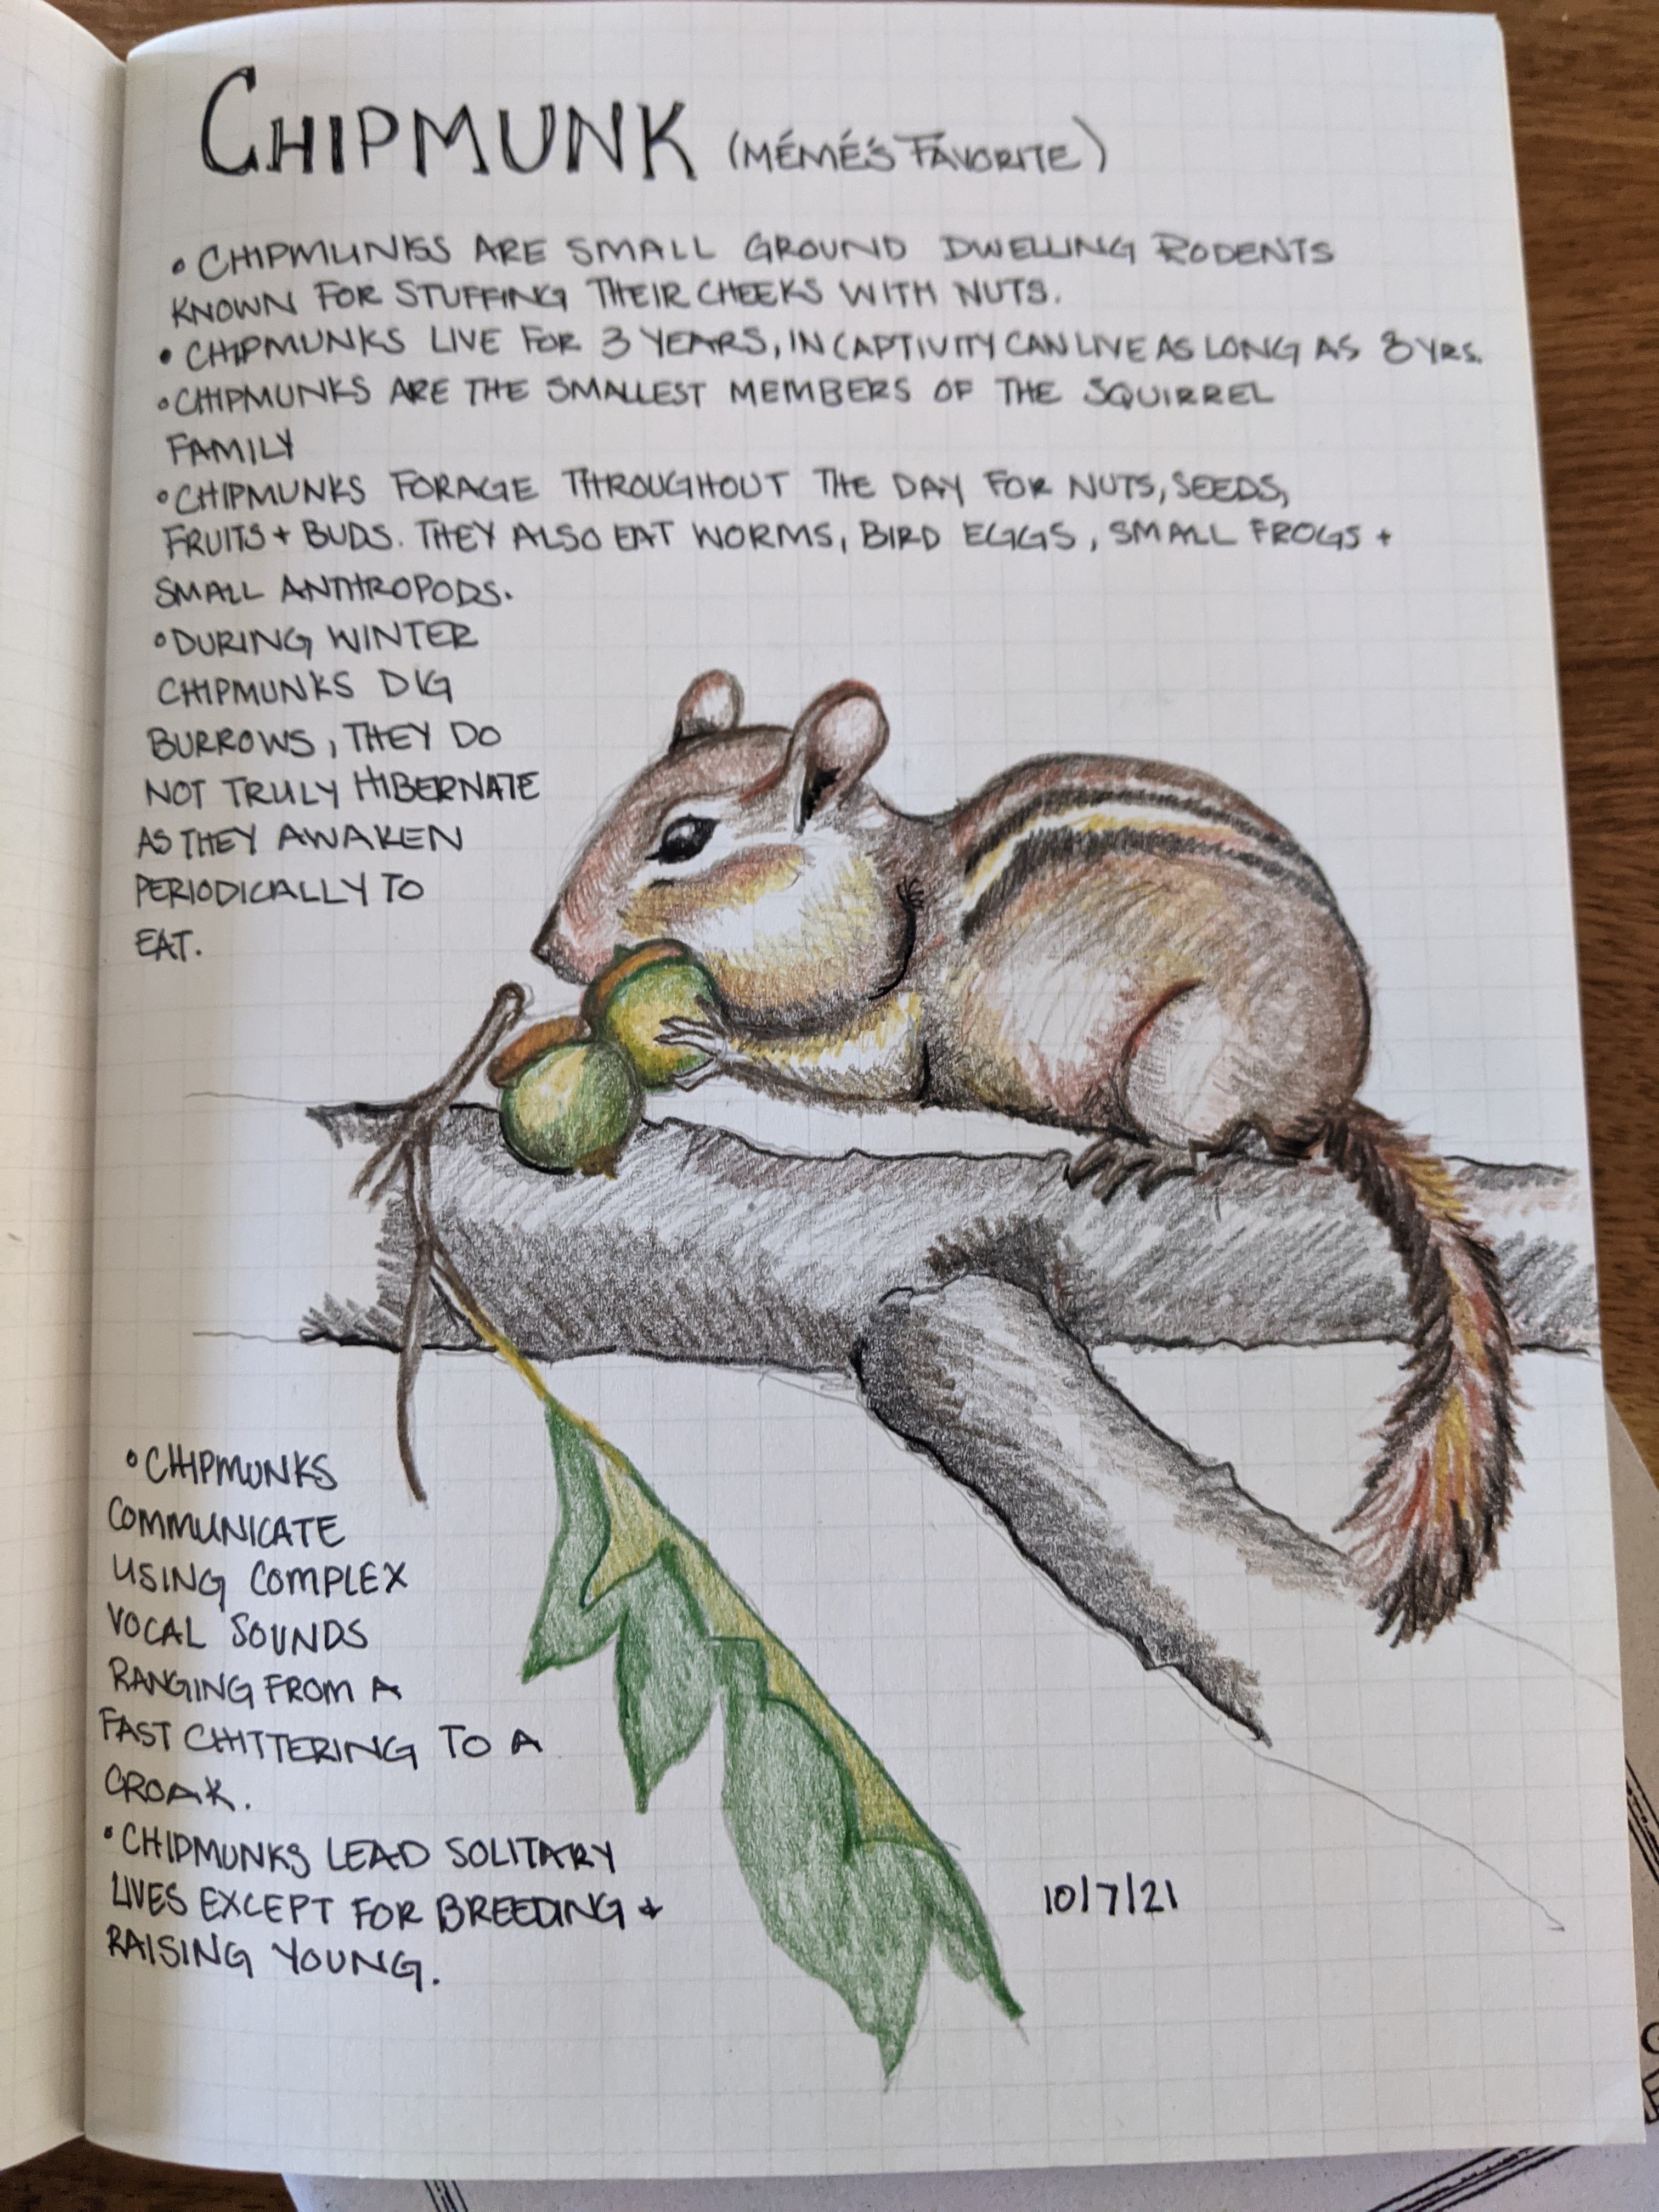 CHIPMUNK (MÉMÉ'S FAVORITE)
• CHIPMUNKS ARE SMALL GROUND DWELLING RODENTS
KNOWN FOR STUFFING THEIR CHEEKS WITH NUTS.
• CHIPMUNKS LIVE FOR 3 YEARS, IN CAPTIVITY CAN LIVE AS LONG AS 8 YRS.
• CHIPMUNKS ARE THE SMALLEST MEMBERS OF THE SQUIRREL
FAMILY
• CHIPMUNKS FORAGE THROUGHOUT THE DAY FOR NUTS, SEEDS,
FRUITS + BUDS. THEY ALSO EAT WORMS, BIRD EGGS, SMALL FROGS +
SMALL ANTHROPODS.
• DURING WINTER
CHIPMUNKS DIG
BURROWS, THEY DO
NOT TRULY HIBERNATE
AS THEY AWAKEN
PERIODICALLY TO
EAT.
• CHIPMUNKS
COMMUNICATE
USING COMPLEX
VOCAL SOUNDS
RANGING FROM A
FAST CHITTERING TO A
CROAK.
• CHIPMUNKS LEAD SOLITARY
LIVES EXCEPT FOR BREEDING +
RAISING YOUNG.
10/7/21